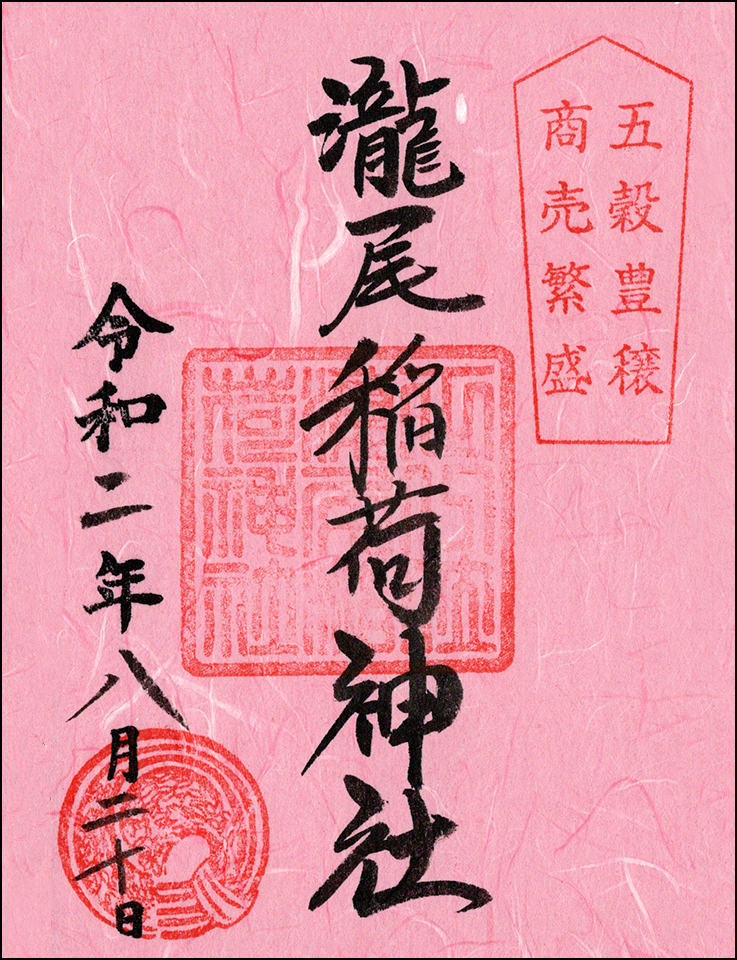 五穀豊穣
商売繁盛
瀧尾稲荷神社
令和二年八月二十日